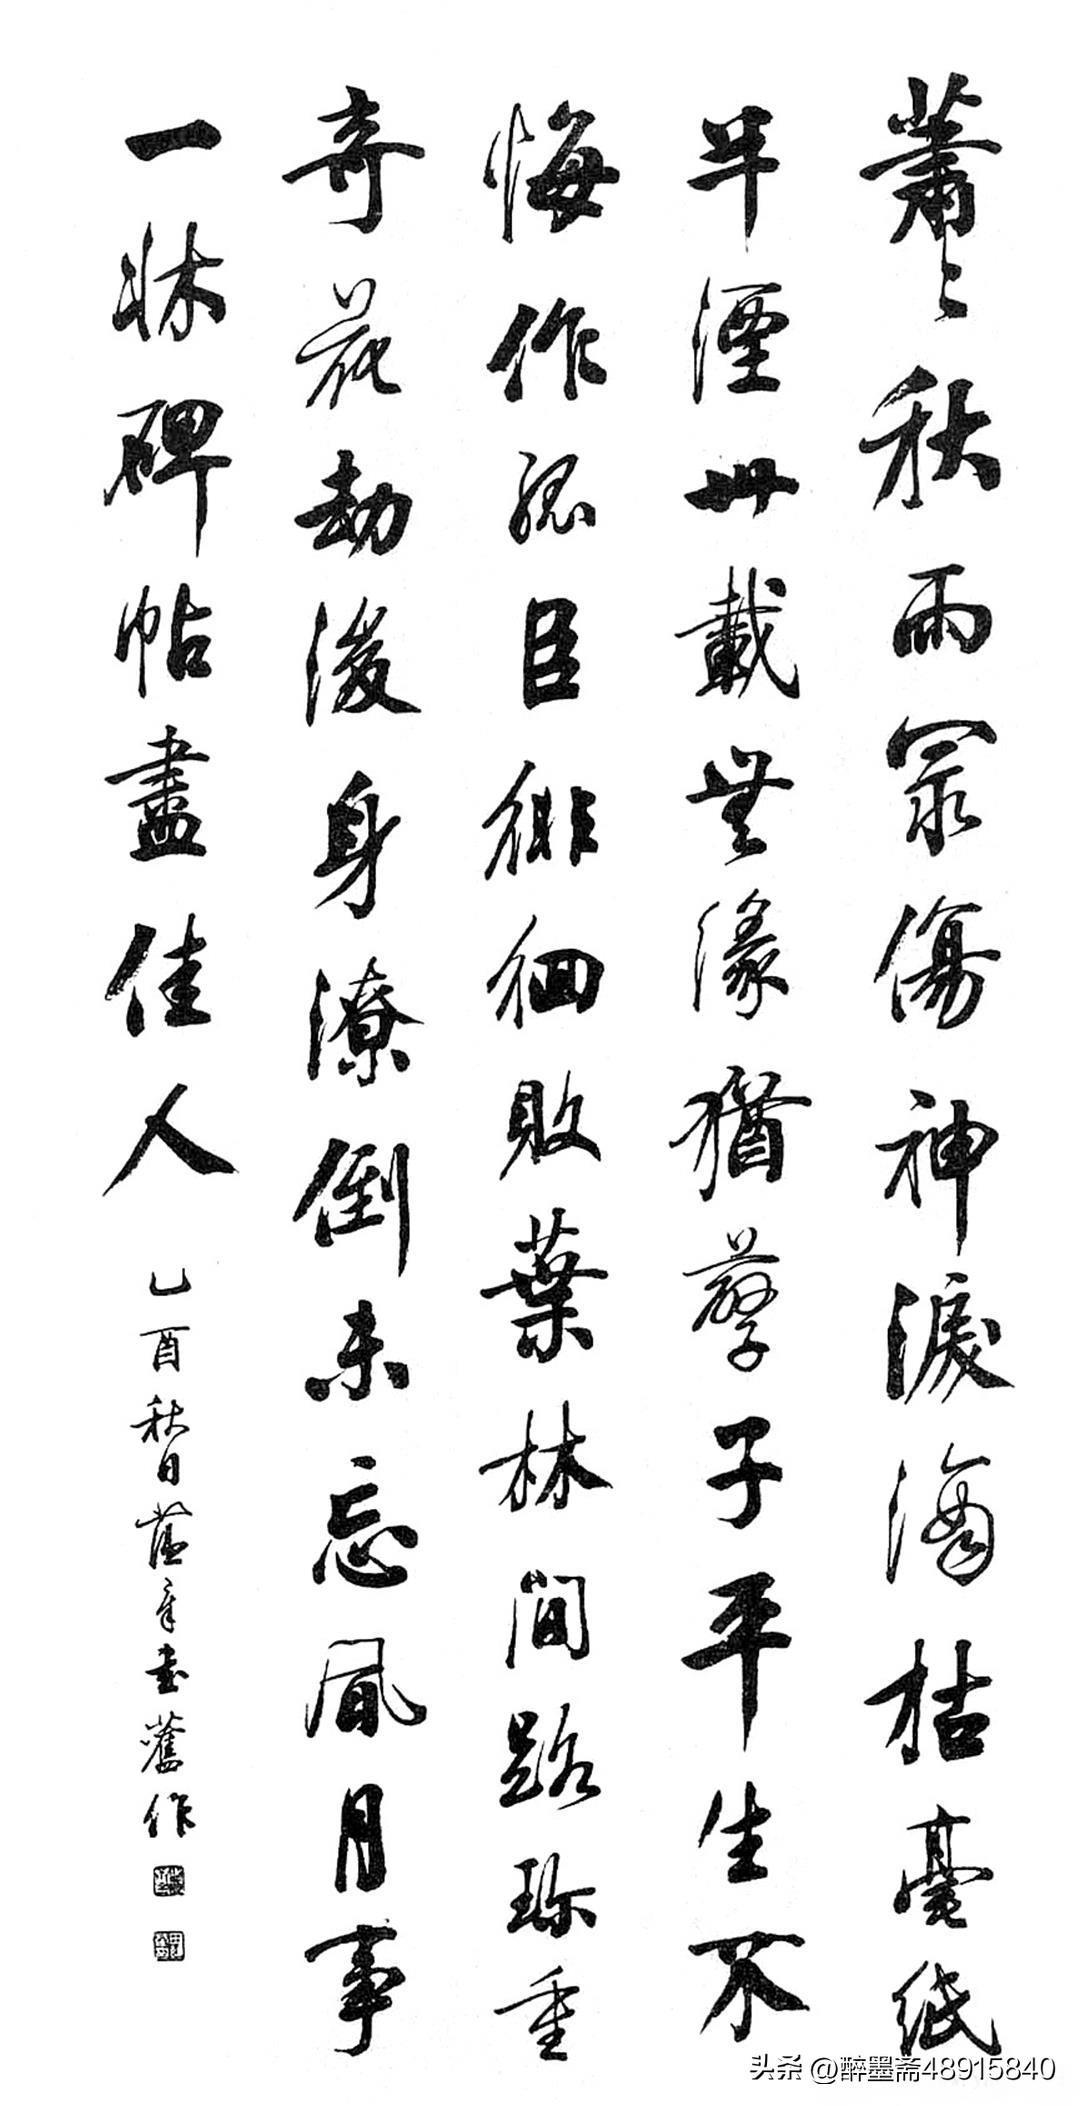 蕭〻秋雨最傷神淚海枯毫紙
半湮卅載無緣猶孽子平生不
悔作孤臣徘徊敗葉林間路珍重
奇花劫後身潦倒未忘風月事
一牀碑帖盡佳人
乙酉秋日蔭章書舊作
头条 @醉墨斋48915840